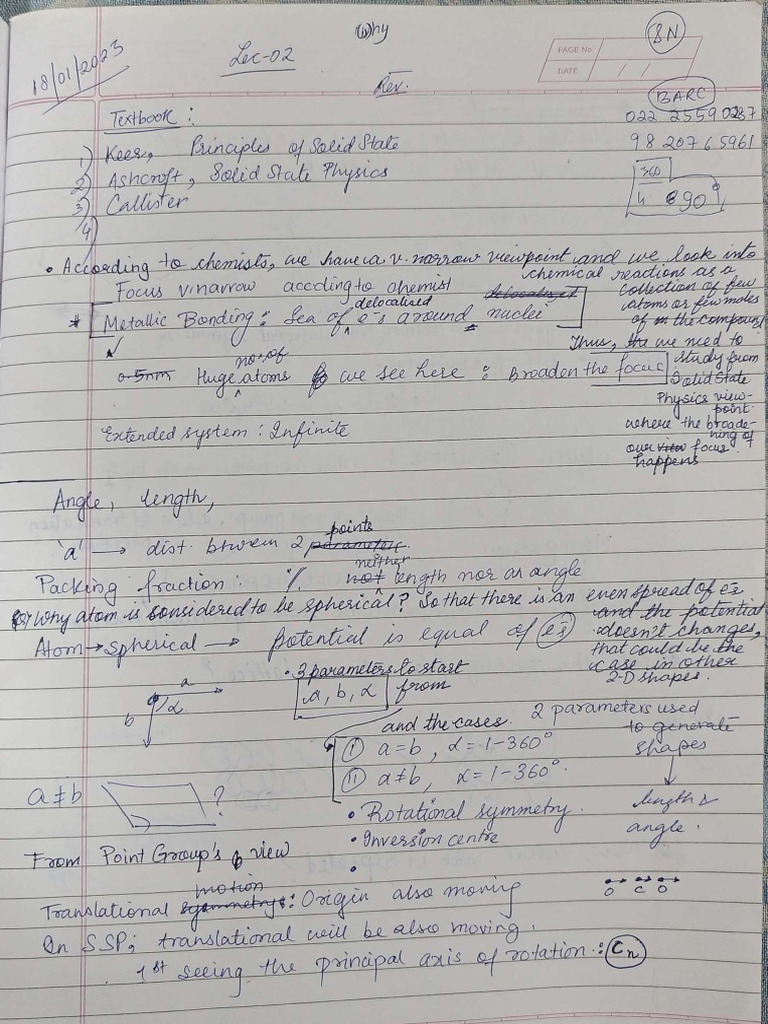 Why
BN
18/01/2023
Lec-02
PAGE No.
DATE / /
Rev.
BARC
Textbook :
022 2559 0287
1) Keer, Principles of Solid State
98 20765961
2) Ashcroft, Solid State Physics
360
3) Callister
4 90°
4)
• According to chemists, we have a v. narrow viewpoint and we look into
chemical reactions as a
Focus v. narrow accding to chemist
collection of few
delocalised
atoms or few moles
* Metallic Bonding : Sea of e⁻s around nuclei
of the compound
Thus, we need to
no. of
study from
0.5nm Huge atoms we see here : Broaden the focus
Solid State
Physics view-
point
Extended system : Infinite
where the broade-
ning of
our view focus
happens
Angle, length,
points
'a' → dist. btween 2 parameters.
neither
Packing fraction : % not length nor as angle
Why atom is considered to be spherical? So that there is an even spread of e⁻s
and the potential
Atom → Spherical → Potential is equal of e⁻s
doesn't changes,
that could be the
case in other
2-D shapes.
• 3 parameters to start
a
a, b, α from
b α
and the cases.
2 parameters used
to generate
shapes
I a = b, α = 1-360°
II a ≠ b, α = 1-360°
a ≠ b ?
• Rotational symmetry.
length &
angle.
• Inversion centre
From Point Group's view
•
motion
Translational symmetry : Origin also moving
O C O
In SSP; translational will be also moving.
1st seeing the principal axis of rotation : Cn